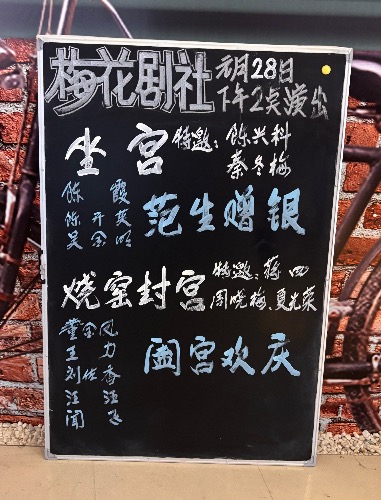 梅花剧社
元月28日
下午2点演出
坐宫
特邀：陈兴科
秦冬梅
陈霞
陈开英
吴金明
范生赠银
烧窑封宫
特邀：蒋四
周晓梅、夏光荣
董金凤
王力
刘佳香
汪汪
闻飞
阖宫欢庆